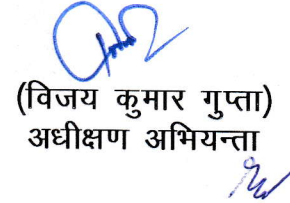 (विजय कुमार गुप्ता)
अधीक्षण अभियन्ता